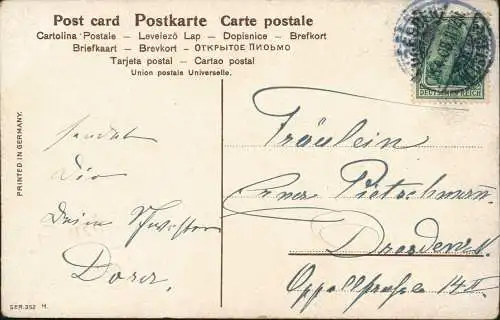 Post card Postkarte Carte postale
Cartolina Postale – Levelező Lap – Dopisnice – Brefkort
Briefkaart – Brevkort – ОТКРЫТОЕ ПИСЬМО
Tarjeta postal – Cartao postal
Union postale Universelle.
DEUTSCHES REICH
PRINTED IN GERMANY.
sendet
Dir
Deine Schwester
Dora.
Fräulein
Erna Pietschmann.
Dresden A.
Oppellstraße 14 II
SER. 352 H.